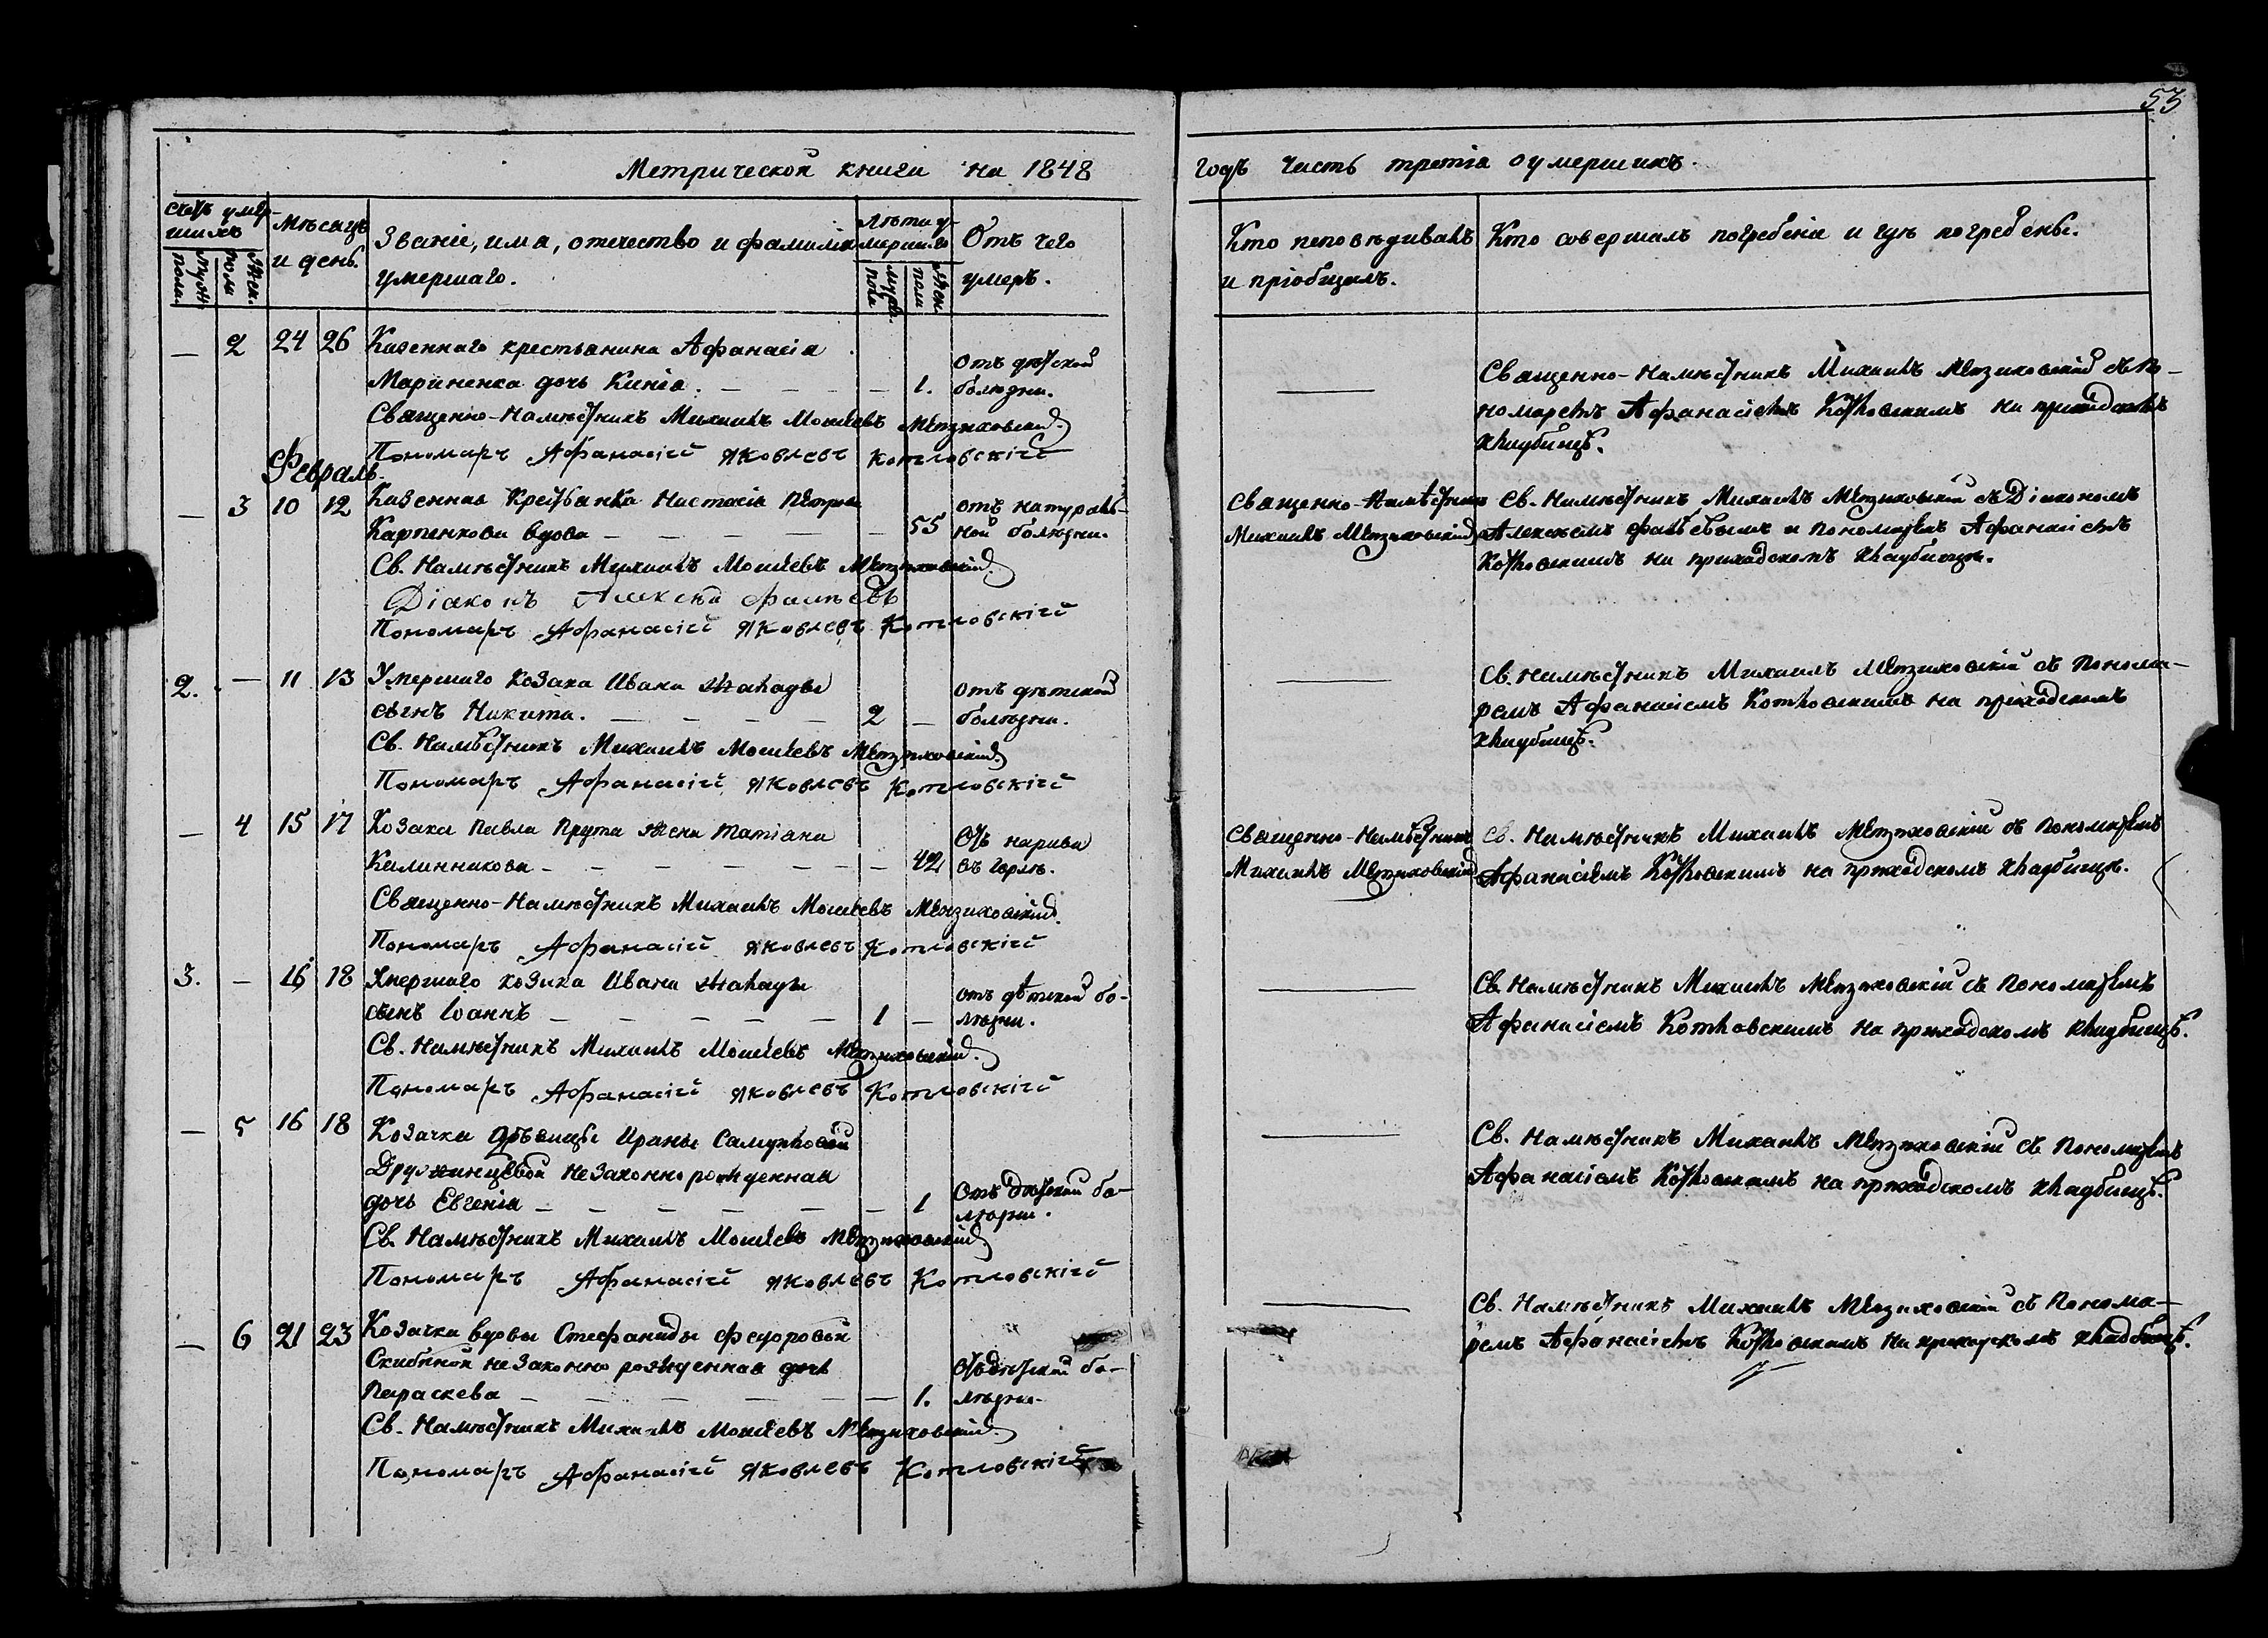 53
Метрической книги на 1848
годъ часть третіа оумершихъ.
счетъ умер-
шихъ
Мѣсяцъ
и день.
муж. пола
жен. пола
Званіе, има, отечество и фамиліа
умершаго.
Лѣта у-
мершаго
муж. пола
жен. пола
Отъ чего
умеръ.
Кто исповѣдивалъ
и пріобщалъ.
Кто совершалъ погребеніе и гдѣ погребены.
— 2 24 26 Казеннаго крестьанина Афанасіа
Мариненка дочь — — — 1.
Отъ дѣтской
болѣзни.
Священно-Намѣстникъ Михаилъ Моисеевъ
Пономарь Афанасій Яковлевъ Котловскій
Священно-Намѣстникъ Михаилъ съ По-
номаремъ Афанасіемъ Котловскимъ на приходскомъ
кладбищѣ.
Февраль.
— 3 10 12 Казеннаа Крестьанка Настасіа Петрова
Карпенкова вдова — — — — — 55
отъ натураль-
ной болѣзни.
Св. Намѣстникъ Михаилъ Моисеевъ
Діаконъ Алексѣй Фалѣевъ
Пономарь Афанасій Яковлевъ Котловскій
Священно-Намѣстникъ
Михаилъ
Св. Намѣстникъ Михаилъ съ Діакономъ
Алексѣемъ Фалѣевымъ и Пономаремъ Афанасіемъ
Котловскимъ на приходскомъ кладбищѣ.
2. — 11 13 Умершаго козака Ивана
сынъ Никита. — — — — 2 —
отъ дѣтской
болѣзни.
Св. Намѣстникъ Михаилъ Моисеевъ
Пономарь Афанасій Яковлевъ Котловскій
Св. Намѣстникъ Михаилъ съ Понома-
ремъ Афанасіемъ Котловскимъ на приходскомъ
кладбищѣ.
— 4 15 17 Козака Павла Прута жена Татіана
Калинникова — — — — — — 42
Отъ нарива
въ горлѣ.
Священно-Намѣстникъ Михаилъ Моисеевъ
Пономарь Афанасій Яковлевъ Котловскій
Священно-Намѣстникъ
Михаилъ
Св. Намѣстникъ Михаилъ съ Пономаремъ
Афанасіемъ Котловскимъ на приходскомъ кладбищѣ.
3. — 16 18 Умершаго козака Ивана
сынъ Іоаннъ — — — — — 1 —
отъ дѣтской бо-
лѣзни.
Св. Намѣстникъ Михаилъ Моисеевъ
Пономарь Афанасій Яковлевъ Котловскій
Св. Намѣстникъ Михаилъ съ Пономаремъ
Афанасіемъ Котловскимъ на приходскомъ кладбищѣ.
— 5 16 18 Козачки дѣвицы Ирины Самуиловой
незаконнорожденнаа
дочь Евгеніа — — — — — — 1
Отъ дѣтской бо-
лѣзни.
Св. Намѣстникъ Михаилъ Моисеевъ
Пономарь Афанасій Яковлевъ Котловскій
Св. Намѣстникъ Михаилъ съ Пономаремъ
Афанасіемъ Котловскимъ на приходскомъ кладбищѣ.
— 6 21 23 Козачки вдовы Стефаниды Федоровой
Скибиной незаконно рожденнаа дочь
Параскева — — — — — — — 1.
Отъ дѣтской бо-
лѣзни.
Св. Намѣстникъ Михаилъ Моисеевъ
Пономарь Афанасій Яковлевъ Котловскій
Св. Намѣстникъ Михаилъ съ Понома-
ремъ Афанасіемъ Котловскимъ на приходскомъ кладбищѣ.